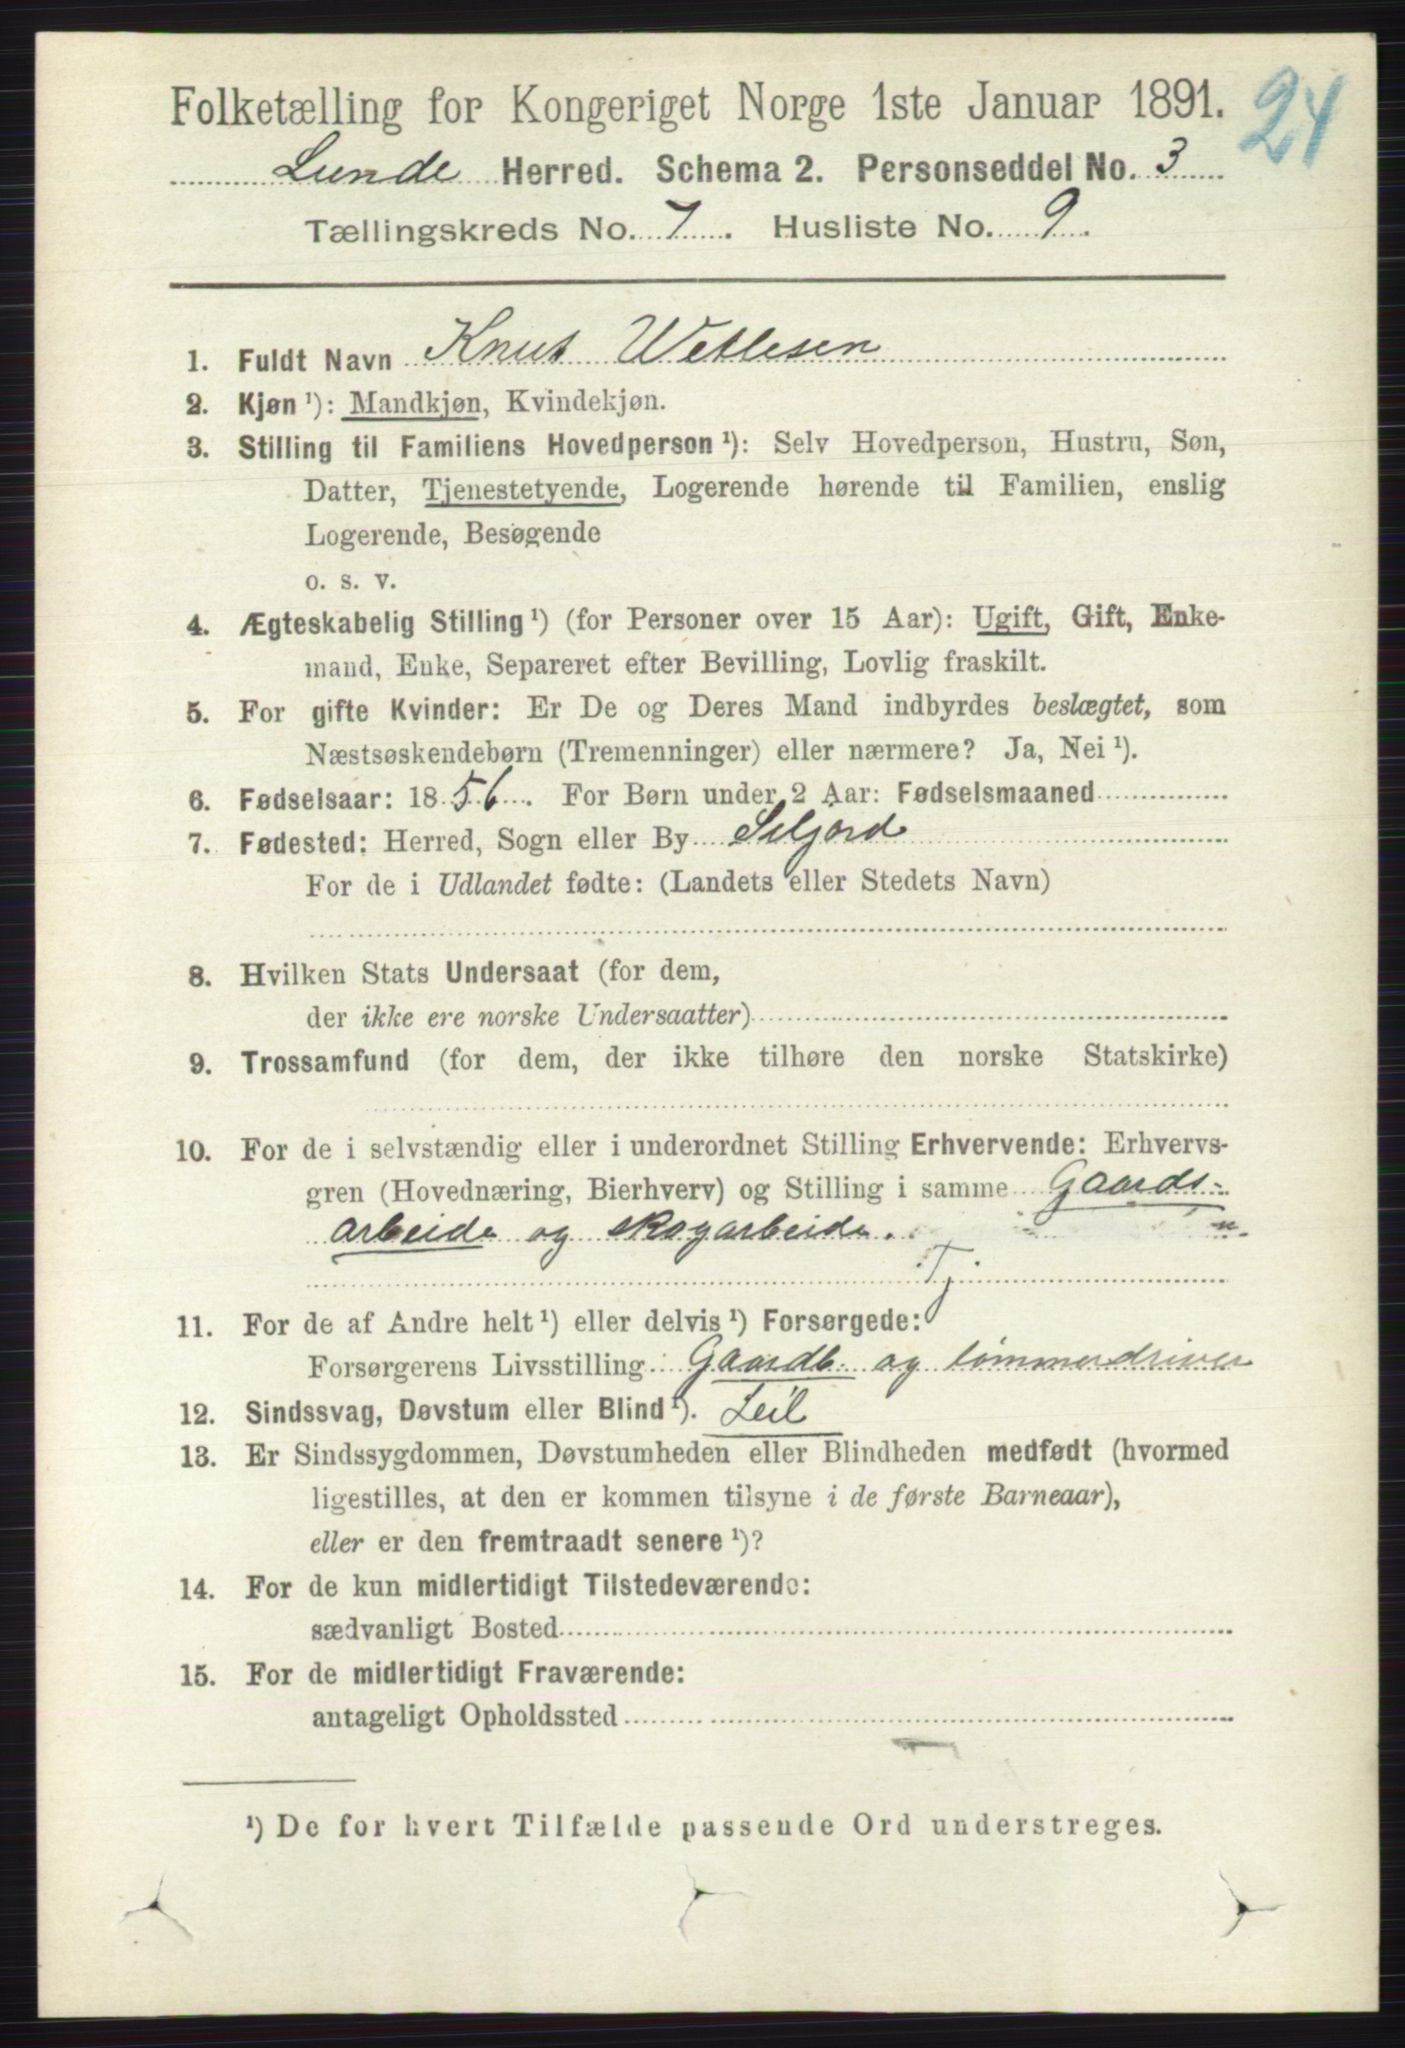 24
Folketælling for Kongeriget Norge 1ste Januar 1891.
Lunde Herred. Schema 2. Personseddel No. 3
Tællingskreds No. 7. Husliste No. 9.
1. Fuldt Navn Knut Wetlesen
2. Kjøn ¹): Mandkjøn, Kvindekjøn.
3. Stilling til Familiens Hovedperson ¹): Selv Hovedperson, Hustru, Søn,
Datter, Tjenestetyende, Logerende hørende til Familien, enslig
Logerende, Besøgende
o. s. v.
4. Ægteskabelig Stilling ¹) (for Personer over 15 Aar): Ugift, Gift, Enke-
mand, Enke, Separeret efter Bevilling, Lovlig fraskilt.
5. For gifte Kvinder: Er De og Deres Mand indbyrdes beslægtet, som
Næstsøskendebørn (Tremenninger) eller nærmere? Ja, Nei ¹).
6. Fødselsaar: 1856. For Børn under 2 Aar: Fødselsmaaned
7. Fødested: Herred, Sogn eller By Seljord
For de i Udlandet fødte: (Landets eller Stedets Navn)
8. Hvilken Stats Undersaat (for dem,
der ikke ere norske Undersaatter)
9. Trossamfund (for dem, der ikke tilhøre den norske Statskirke)
10. For de i selvstændig eller i underordnet Stilling Erhvervende: Erhvervs-
gren (Hovednæring, Bierhverv) og Stilling i samme Gaards-
arbeide og skogarbeide.
Tj
11. For de af Andre helt ¹) eller delvis ¹) Forsørgede:
Forsørgerens Livsstilling Gaardb. og tømmerdriver
12. Sindssvag, Døvstum eller Blind ¹). Leil
13. Er Sindssygdommen, Døvstumheden eller Blindheden medfødt (hvormed
ligestilles, at den er kommen tilsyne i de første Barneaar),
eller er den fremtraadt senere ¹)?
14. For de kun midlertidigt Tilstedeværende:
sædvanligt Bosted
15. For de midlertidigt Fraværende:
antageligt Opholdssted
¹) De for hvert Tilfælde passende Ord understreges.